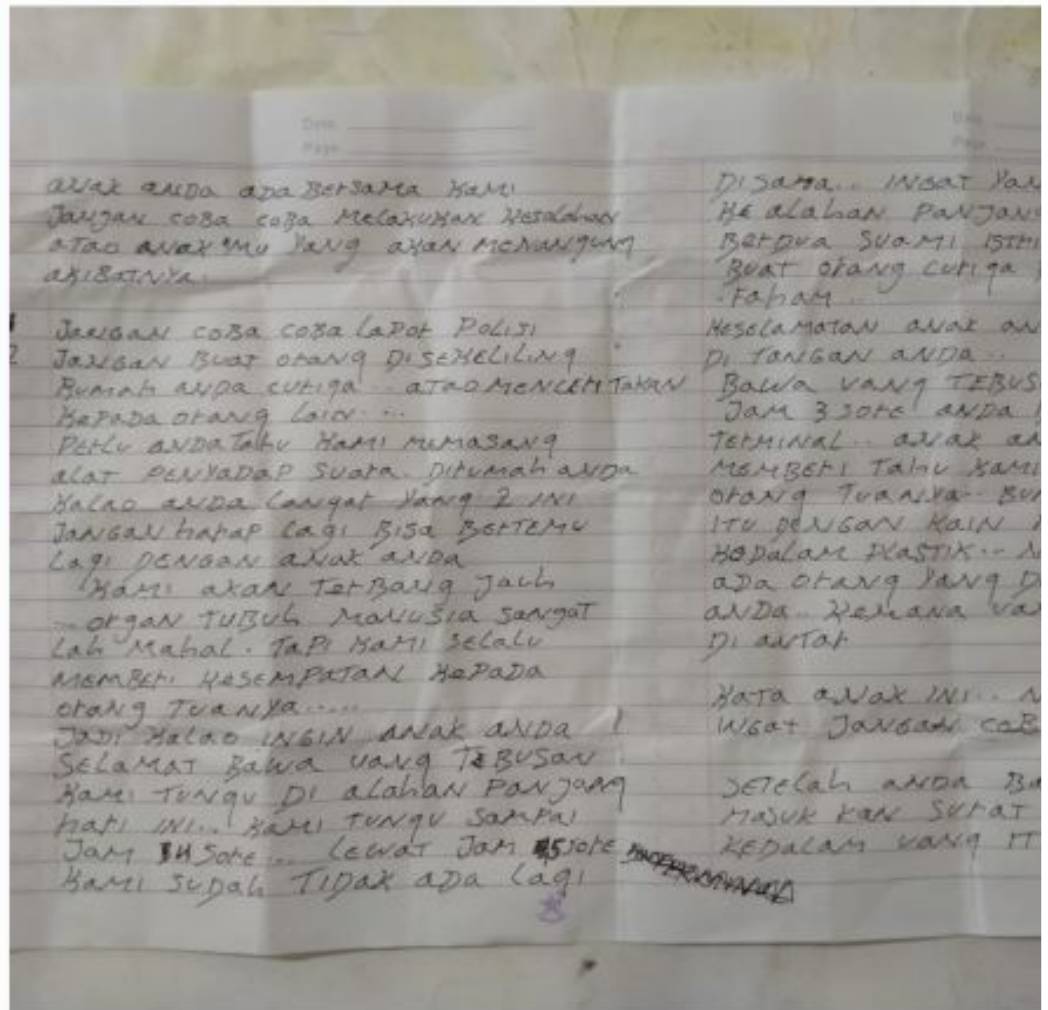 Date
Page
anak anda ada Bersama Kami
Jangan coba coba Melakukan Kesalahan
atao anak mu Yang akan Menangung
akibatnya.
1 Jangan coba coba Lapor Polisi
2 Jangan Buat orang DiseKeliling
Rumah anda curiga .. atao Menceritakan
Kepada orang Lain ...
Perlu anda Tahu Kami Memasang
alat Penyadap Suara. Dirumah anda
Kalao anda Langar Yang 2 ini
Jangan harap Lagi Bisa Bertemu
Lagi Dengan anak anda
Kami akan Terbang Jauh
.. organ Tubuh Manusia Sangat
Lah Mahal. Tapi Kami Selalu
Memberi Kesempatan Kepada
orang Tuanya.....
Jadi Kalao ingin anak anda
Selamat Bawa uang Tebusan
Kami Tungu Di alahan Panjang
hari ini... Kami Tungu Sampai
Jam Sore ... Lewat Jam 5 Sore
Kami Sudah Tidak ada Lagi
Date
Page
Disana... ingat
Ke alahan Panjang
Berdua Suami istri
Buat orang curiga
. Faham ..
Keselamatan anak
Di Tangan anda ..
Bawa uang
Jam 3 Sore anda
Terminal .. anak
Memberi Tahu Kami
orang Tuanya ..
itu Dengan Kain
Kedalam Plastik ..
ada orang Yang
anda .. Kemana
Di antar
Kata anak ini ..
ingat Jangan
Setelah anda
Masuk kan Surat
Kedalam uang